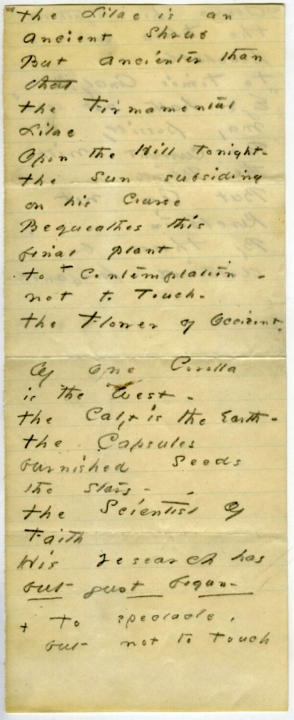 The Lilac is an
Ancient Shrub
But Ancienter than
that
The Firmamental
Lilac
Opon the Hill Tonight -
The Sun subsiding
on his Course
Bequeathes this
final plant
To + Contemplation -
not to Touch -
The Flower of Occident.
Of one Corolla
is the West -
The Calyx is the Earth -
The Capsules
burnished Seeds
the Stars -
The Scientist of
Faith
His research has
but just begun -
+ To spectacle,
but not to Touch